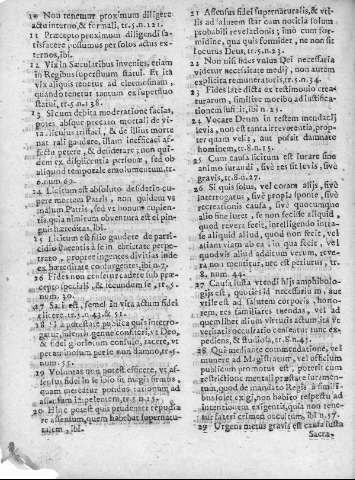 10 Non tenemur proximum diligere
actu interno, & formali, tr.5. n. 121.
11 Præcepto proximum diligendi sa-
tisfacere possumus per solos actus ex-
ternos, ibi.
12 Vix in Sæcularibus invenies, etiam
in Regibus superfluum statui. Et ita
vix aliquis tenetur ad eleemosinam,
quando tenetur tantum ex superfluo
statui, tr.5. n. 138.
13 Si cum debita moderatione facias,
potes absque peccato mortali de vi-
ta alicujus tristari, & de illius morte
naturali gaudere, illam inefficaci af-
fectu petere, & desiderare; non qui-
dem ex displicentia personæ, sed ob
aliquod temporale emolumentum, tr.
6. num. 63.
14 Licitum est absoluto desiderio cu-
pere mortem Patris, non quidem ut
malum Patris, sed ut bonum cupien-
tis, quia nimirum obventura est ei pin-
guis hæreditas, ibi.
15 Licitum est filio gaudere de parri-
cidio Parentis à se in ebrietate perpe-
trato, propter ingentes divitias inde
ex hæreditate consequentes, ibi. n. 7.
26 Fides non censetur cadere sub præ-
cepto speciali, & secundum se, tr. 5.
num. 30.
27 Satis est, semel in vita actum fidei
elicere, tr. 5. n. 43. & 51.
18 Si à potestate publica quis interro-
getur, fidem ingenue confiteri, ut Deo,
& fidei gloriosum consulo, tacere, ut
peccaminosum per se non damno, tr. 5.
num. 55.
29 Voluntas non potest efficere, ut as-
sensus fidei in se ipso sit magis firmus,
quam mereatur pondus rationum ad
assensum impellentem, tr. 5. n. 15.
20 Hinc potest quis prudenter repudia-
re assensum, quem habebat supernatu-
ralem, ibi.
21 Assensus fidei supernaturalis, & uti-
lis ad salutem stat cum notitia solum
probabili revelationis; imo cum for-
midine, qua quis formidet, ne non sit
locutus Deus, tr. 5. n. 23.
22 Non nisi fides unius Dei necessaria
videtur necessitate medij, non autem
explicita remuneratoris, tr. 5. n. 34.
23 Fides late dicta ex testimonio crea-
turarum, similive motivo ad justifica-
tionem sufficit, ibi n. 25.
24 Vocare Deum in testem mendacij
levis, non est tanta irreverentia, prop-
ter quam velit, aut possit damnare
hominem, tr. 8. n. 15.
25 Cum causa licitum est jurare sine
animo jurandi, sive res sit levis, sive
gravis, tr. 8. n. 27.
26 Si quis solus, vel coram alijs, sive
interrogatus, sive propria sponte, sive
recreationis causa, sive quocumque
alio fine juret, se non fecisse aliquid,
quod revera fecit, intelligendo intra
se aliquid aliud, quod non fecit, vel
aliam viam ab ea, in qua fecit, vel
quodvis aliud additum verum, reve-
ra non mentitur, nec est perjurus, tr.
8. num. 44.
27 Causa justa utendi his amphibolo-
gijs est, quoties id necessarium, aut
utile est ad salutem corporis, hono-
rem, res familiares tuendas, vel ad
quemlibet alium virtutis actum, ita ut
veritatis occultatio censeatur tunc ex-
pediens, & studiosa, tr. 8. n. 45.
28 Qui mediante commendatione, vel
munere ad Magistratum, vel officium
publicum promotus est, poterit cum
restrictione mentali præstare juramen-
tum, quod de mandato Regis à simili-
bus solet exigi, non habito respectu ad
intentionem exigentis, quia non tene-
tur fateri crimen occultum, ibi n. 57.
29 Urgens metus gravis est causa justa
Sacra-